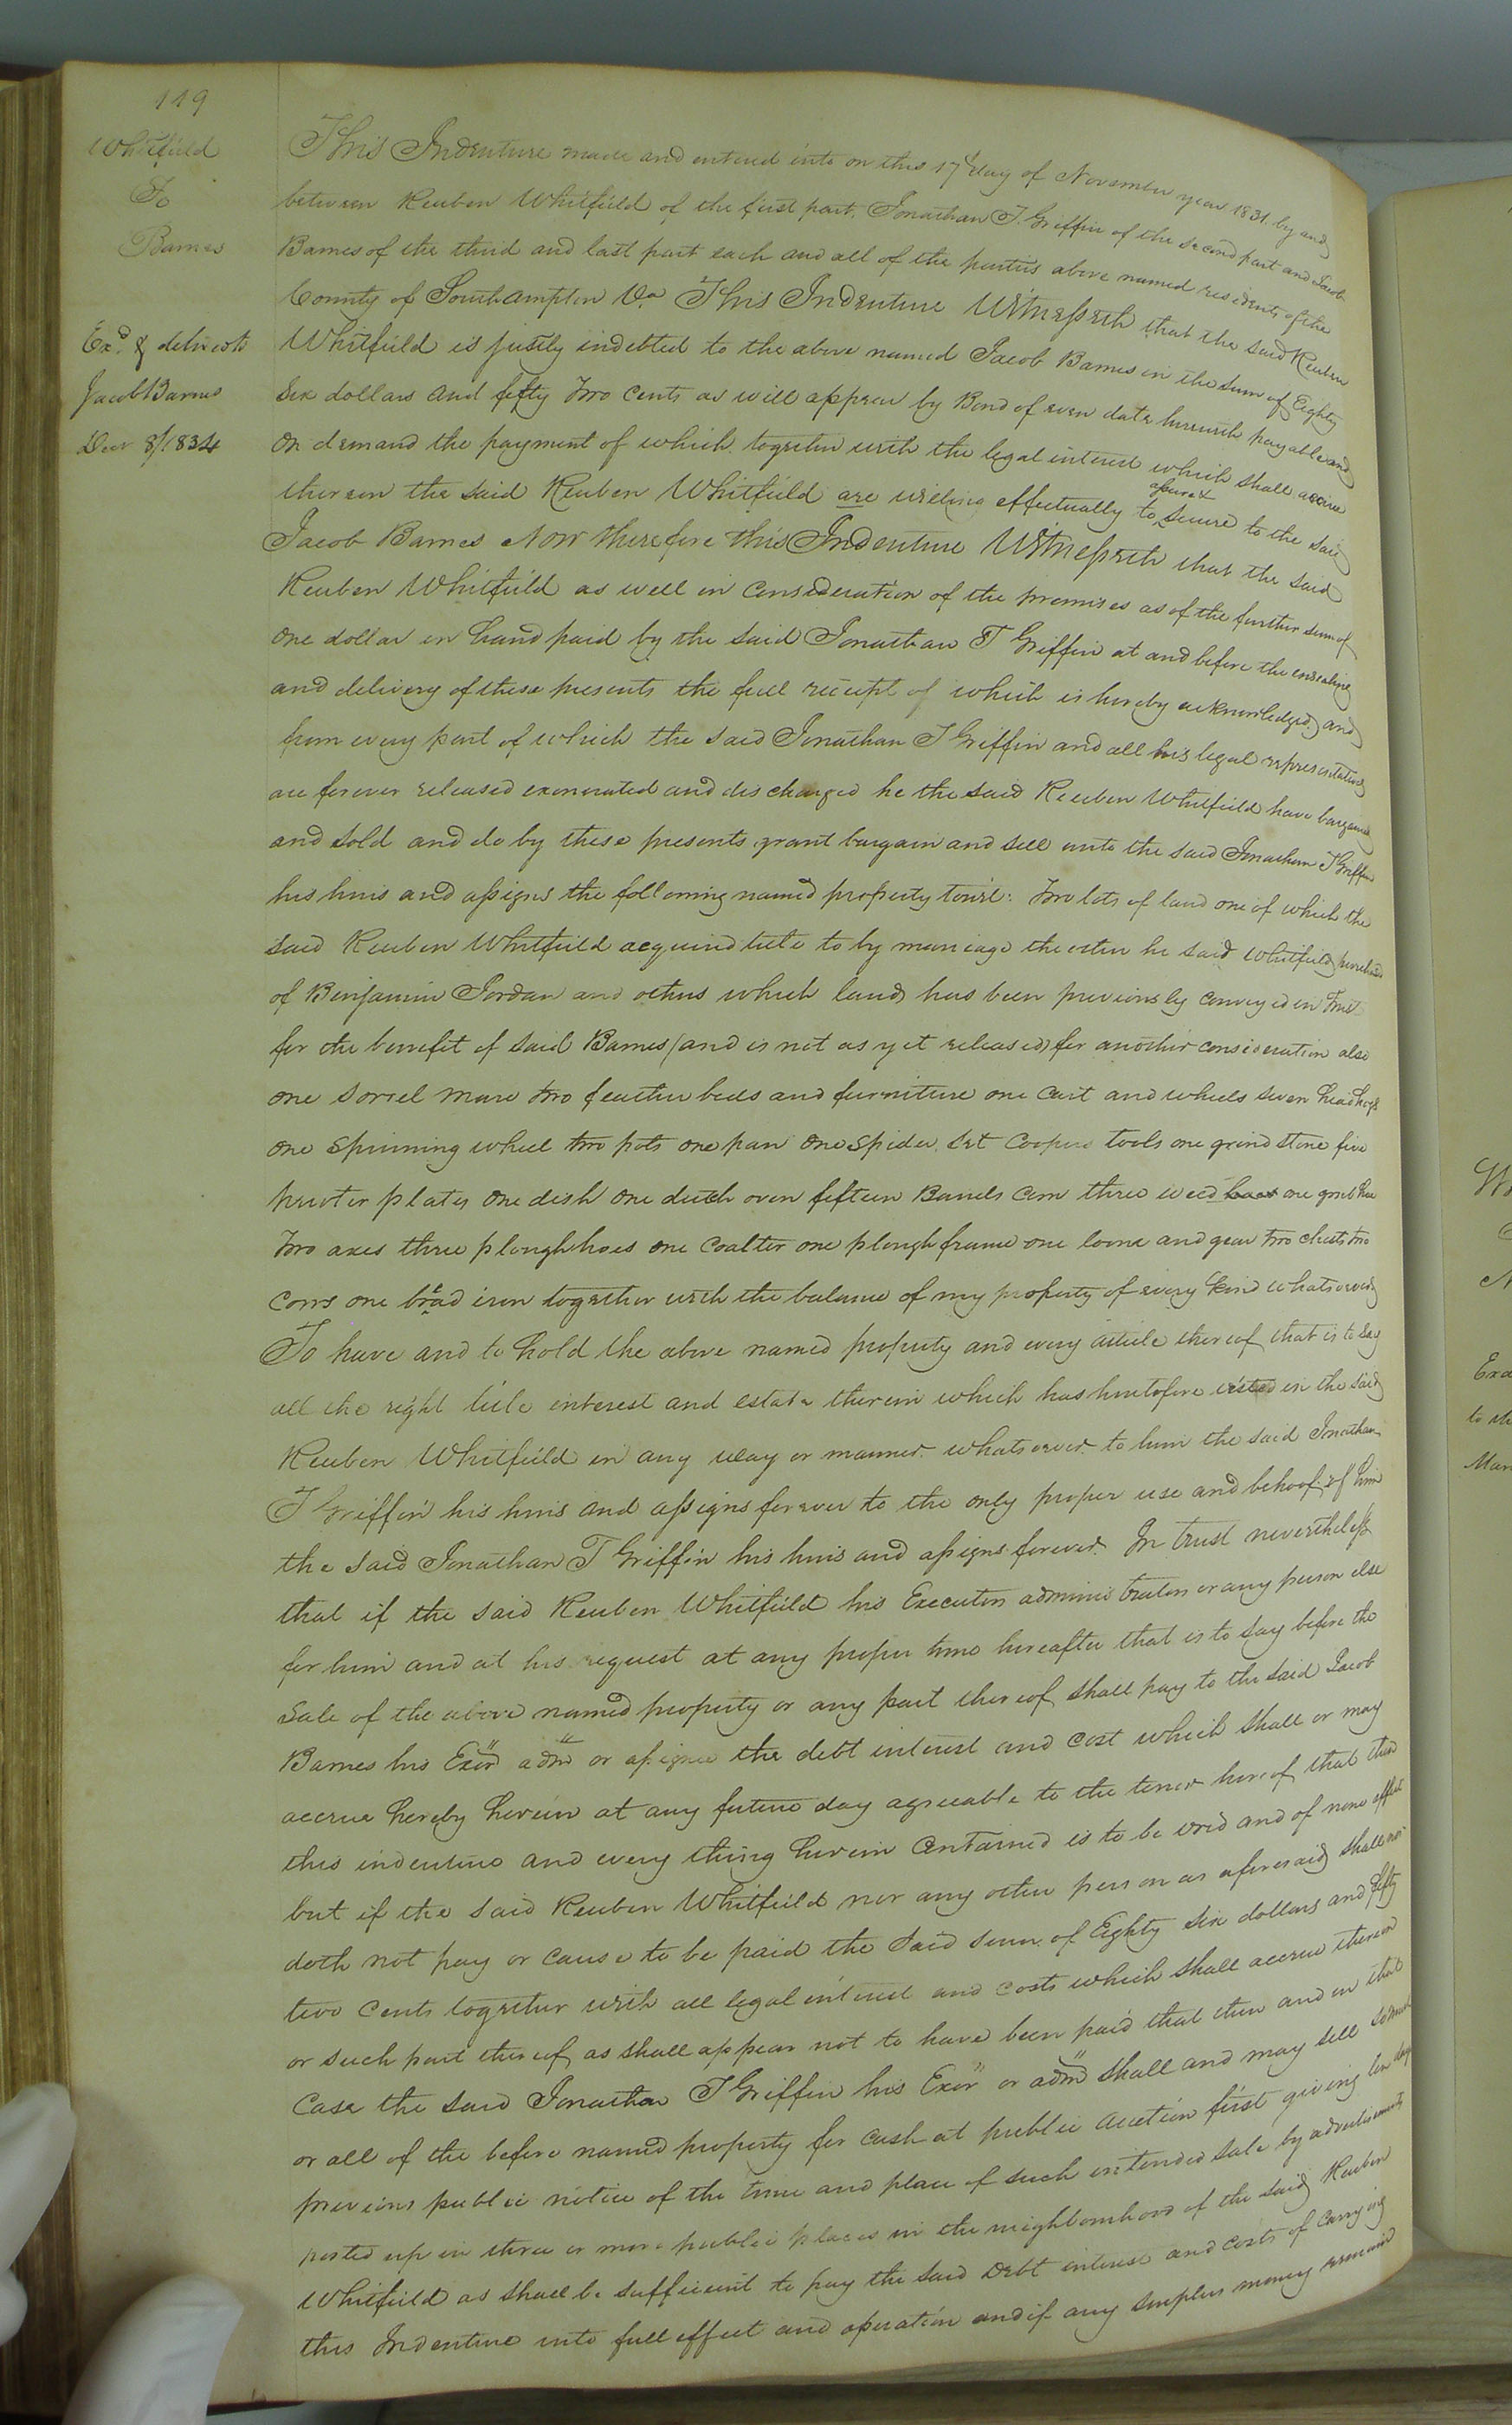 119
Whitfield
To
Barnes
Exd. & deliv'd to
Jacob Barnes
Decr 8/1834
This Indenture made and entered into on this 17th day of November year 1831. by and
between Reuben Whitfield of the first part, Jonathan T. Griffin of the second part and Jacob
Barnes of the third and last part each and all of the parties above named residents of the
County of Southampton Va This Indenture Witnesseth that the said Reuben
Whitfield is justly indebted to the above named Jacob Barnes in the sum of Eighty
six dollars and fifty two cents as will appear by Bond of even date herewith payable and
on demand the payment of which together with the legal interest which shall accrue
thereon the said Reuben Whitfield are willing effectually to assure & secure to the said
Jacob Barnes Now therefore this Indenture Witnesseth that the said
Reuben Whitfield as well in consideration of the premises as of the further sum of
one dollar in hand paid by the said Jonathan T Griffin at and before the ensealing
and delivery of these presents the full receipt of which is hereby acknowledged and
from every part of which the said Jonathan T Griffin and all his legal representatives
are forever released exonerated and discharged he the said Reuben Whitfield have bargained
and sold and do by these presents grant bargain and sell unto the said Jonathan T Griffin
his heirs and assigns the following named property towit: Two lots of land one of which the
said Reuben Whitfield acquired title to by marriage the other he said Whitfield purchased
of Benjamin Jordan and others which land has been previously conveyed in Trust
for the benefit of said Barnes (and is not as yet released) for another consideration also
one sorrel mare two feather beds and furniture one cart and wheels seven head hogs
one spinning wheel two pots one pan one spider, set Coopers tools one grind stone five
pewter plates one dish one dutch oven fifteen Barrels corn three weed hoes one grub hoe
two axes three plough hoes one coalter one plough frame one loom and gear two chests two
cows one bread iron together with the balance of my property of every kind whatsoever
To have and to hold the above named property and every article thereof that is to say
all the right title interest and estate therein which has heretofore vested in the said
Reuben Whitfield in any way or manner whatsoever to him the said Jonathan
T Griffin his heirs and assigns forever to the only proper use and behoof of him
the said Jonathan T Griffin his heirs and assigns forever. In trust nevertheless
that if the said Reuben Whitfield his Executors administrators or any person else
for him and at his request at any proper time hereafter that is to say before the
sale of the above named property or any part thereof shall pay to the said Jacob
Barnes his Exors admrs or assignee the debt interest and cost which shall or may
accrue hereby herein at any future day agreeable to the tenor hereof that then
this indenture and every thing herein contained is to be void and of none effect
but if the said Reuben Whitfield nor any other person as aforesaid shall nor
doth not pay or cause to be paid the said sum of Eighty six dollars and fifty
two cents together with all legal interest and costs which shall accrue thereon
or such part thereof as shall appear not to have been paid that then and in that
case the said Jonathan T Griffin his Exors or admrs shall and may sell so much
or all of the before named property for cash at public auction first giving ten days
previous public notice of the time and place of such intended sale by advertisements
posted up in three or more public places in the neighbourhood of the said Reuben
Whitfield as shall be sufficient to pay the said Debt interest and costs of carrying
this Indenture into full effect and operation and if any surplus money remain